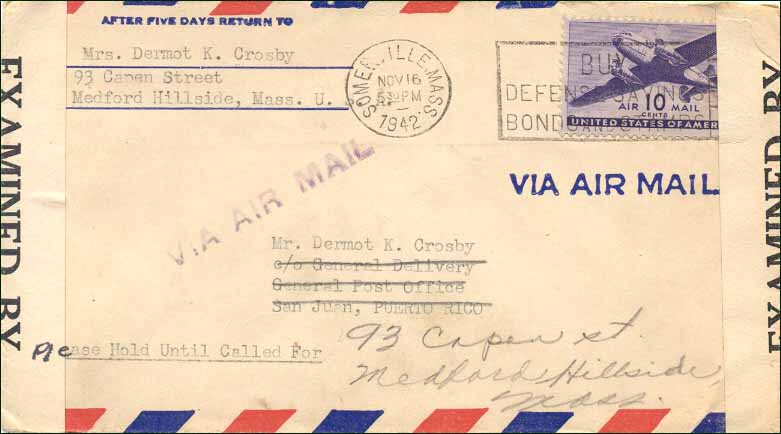 AFTER FIVE DAYS RETURN TO
Mrs. Dermot K. Crosby
93 Capen Street
Medford Hillside, Mass. U. S.
SOMERVILLE, MASS.
NOV 16
5 30 PM
1942
BUY
DEFENSE SAVINGS
BONDS AND STAMPS
AIR 10 MAIL
CENTS
UNITED STATES OF AMER
VIA AIR MAIL
VIA AIR MAIL
EXAMINED BY
EXAMINED BY
Mr. Dermot K. Crosby
c/o General Delivery
General Post Office
San Juan, PUERTO RICO
Please Hold Until Called For
93 Capen st.
Medford Hillside,
Mass.